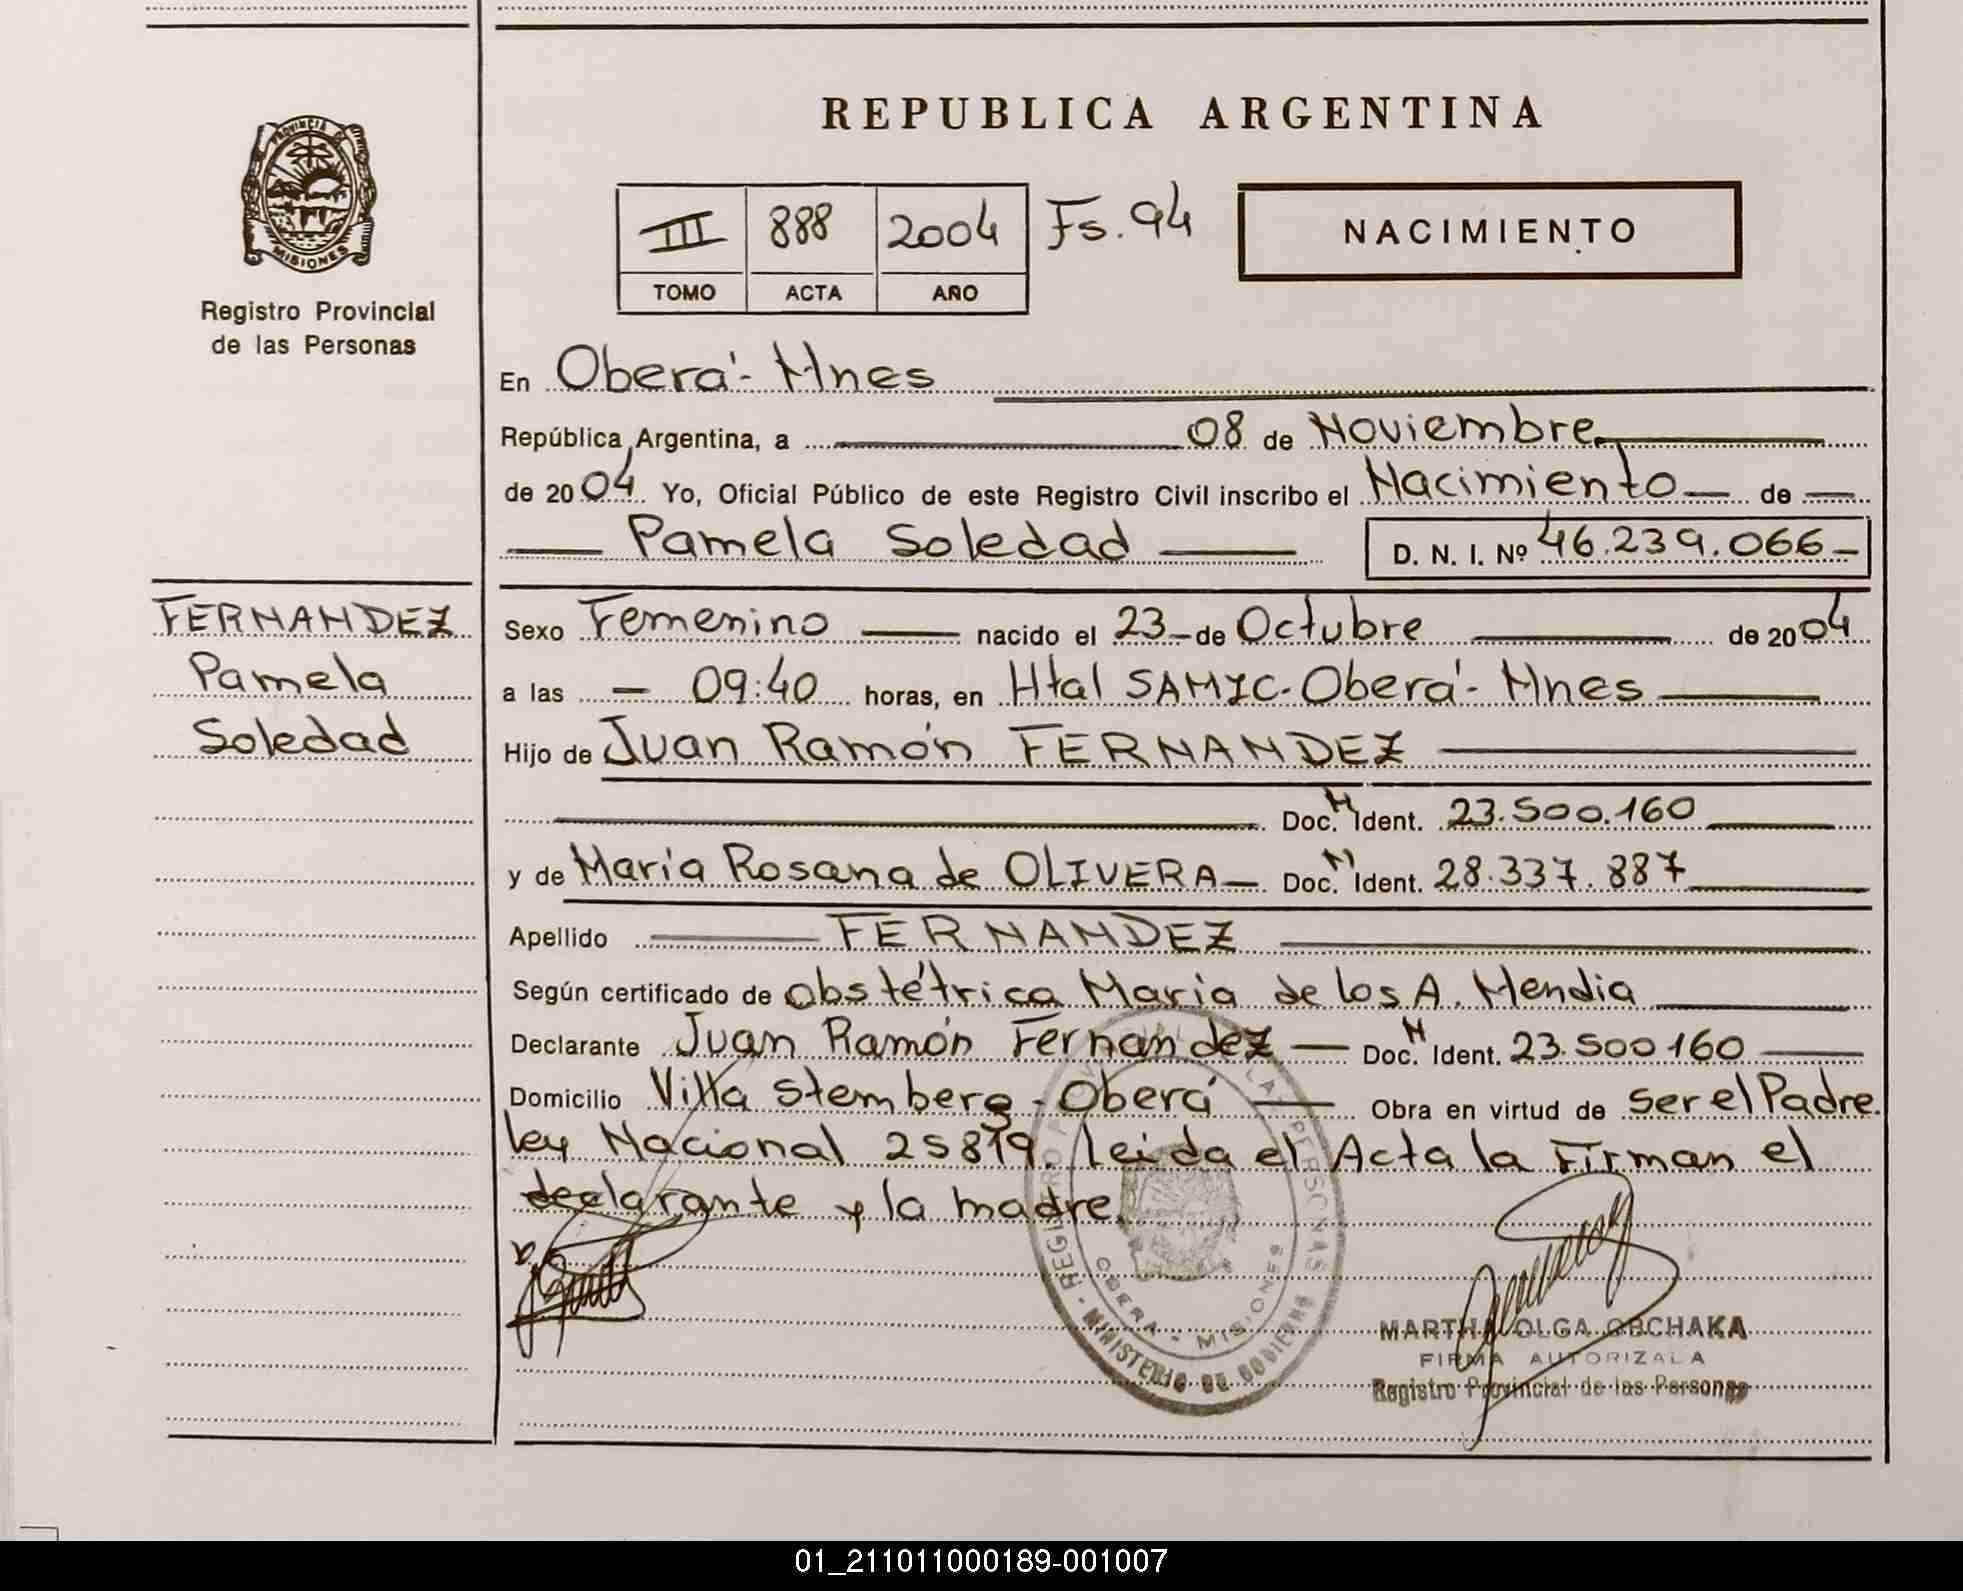 REPUBLICA ARGENTINA
PROVINCIA DE
MISIONES
Registro Provincial
de las Personas
III 888 2004 Fs. 94
TOMO ACTA AÑO
NACIMIENTO
En Oberá - Mnes
República Argentina, a 08 de Noviembre
de 2004 Yo, Oficial Público de este Registro Civil inscribo el Nacimiento de
Pamela Soledad D. N. I. Nº 46.239.066
FERNANDEZ
Pamela
Soledad
Sexo Femenino nacido el 23 de Octubre de 2004
a las 09:40 horas, en Htal SAMIC - Oberá - Mnes
Hijo de Juan Ramón FERNANDEZ
Doc. N Ident. 23.500.160
y de María Rosana de OLIVERA Doc. N Ident. 28.337.887
Apellido FERNANDEZ
Según certificado de obstétrica María de los A. Mendia
Declarante Juan Ramón Fernandez Doc. N Ident. 23.500160
Domicilio Villa Stemberg - Oberá Obra en virtud de ser el Padre.
Ley Nacional 25819. Leida el Acta la Firman el
declarante y la madre.
REGISTRO PROVINCIAL DE LAS PERSONAS
OBERA - MISIONES
MINISTERIO DE GOBIERNO
MARTHA OLGA OBCHAKA
FIRMA AUTORIZADA
Registro Provincial de las Personas
01_211011000189-001007